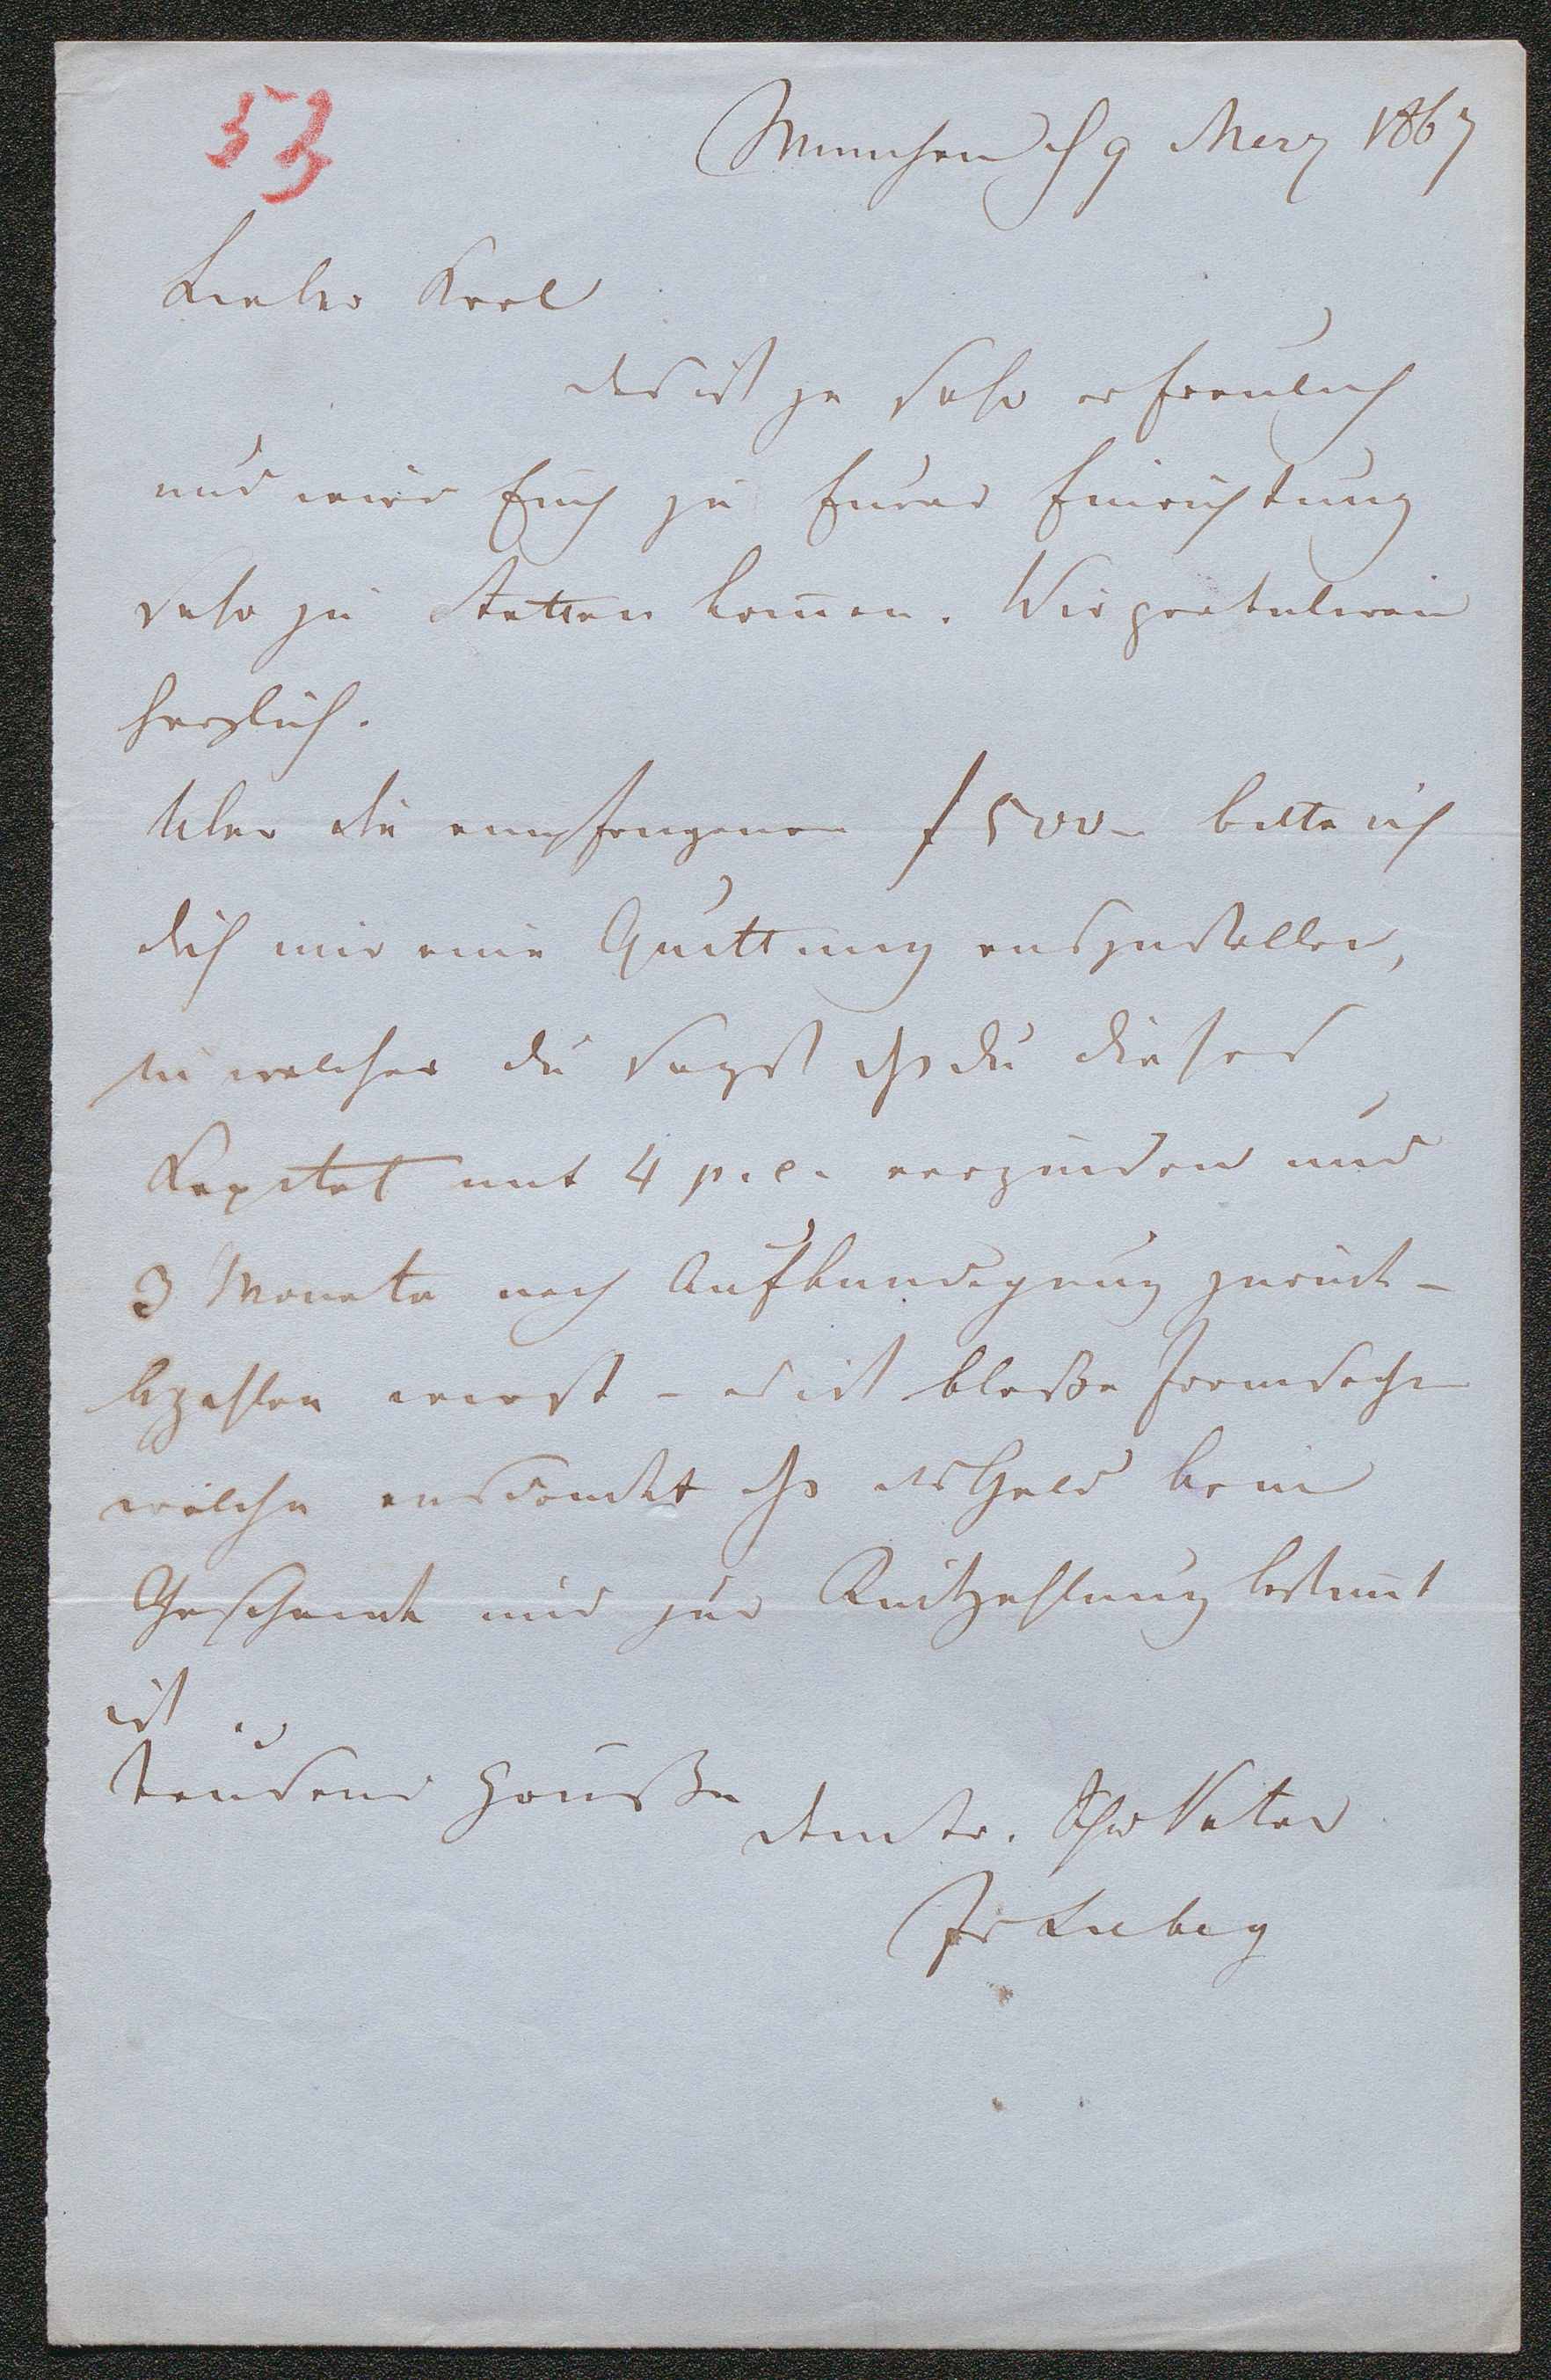 53
München d 9 Merz 1867
Lieber Karl
das ist ja sehr erfreulich
und wird Euch zu Eurer Einrichtung
sehr zu Statten kom̅en. Wir gratuliren
herzlich.
Ueber die empfangenen f 500 bitte ich
dich mir eine Quittung auszustellen,
in welcher du sagst dß du dieses
Kapital mit 4 p. c. verzinsen und
3 Monate nach Aufkündigung zurück-
bezahlen wirst – es ist bloße Formsache
welche ausdrückt dß das Geld kein
Geschenk und zur Rückzahlung bestim̅t
ist
Tausend Grüße
dein tr. Schw Vater
Jv Liebig